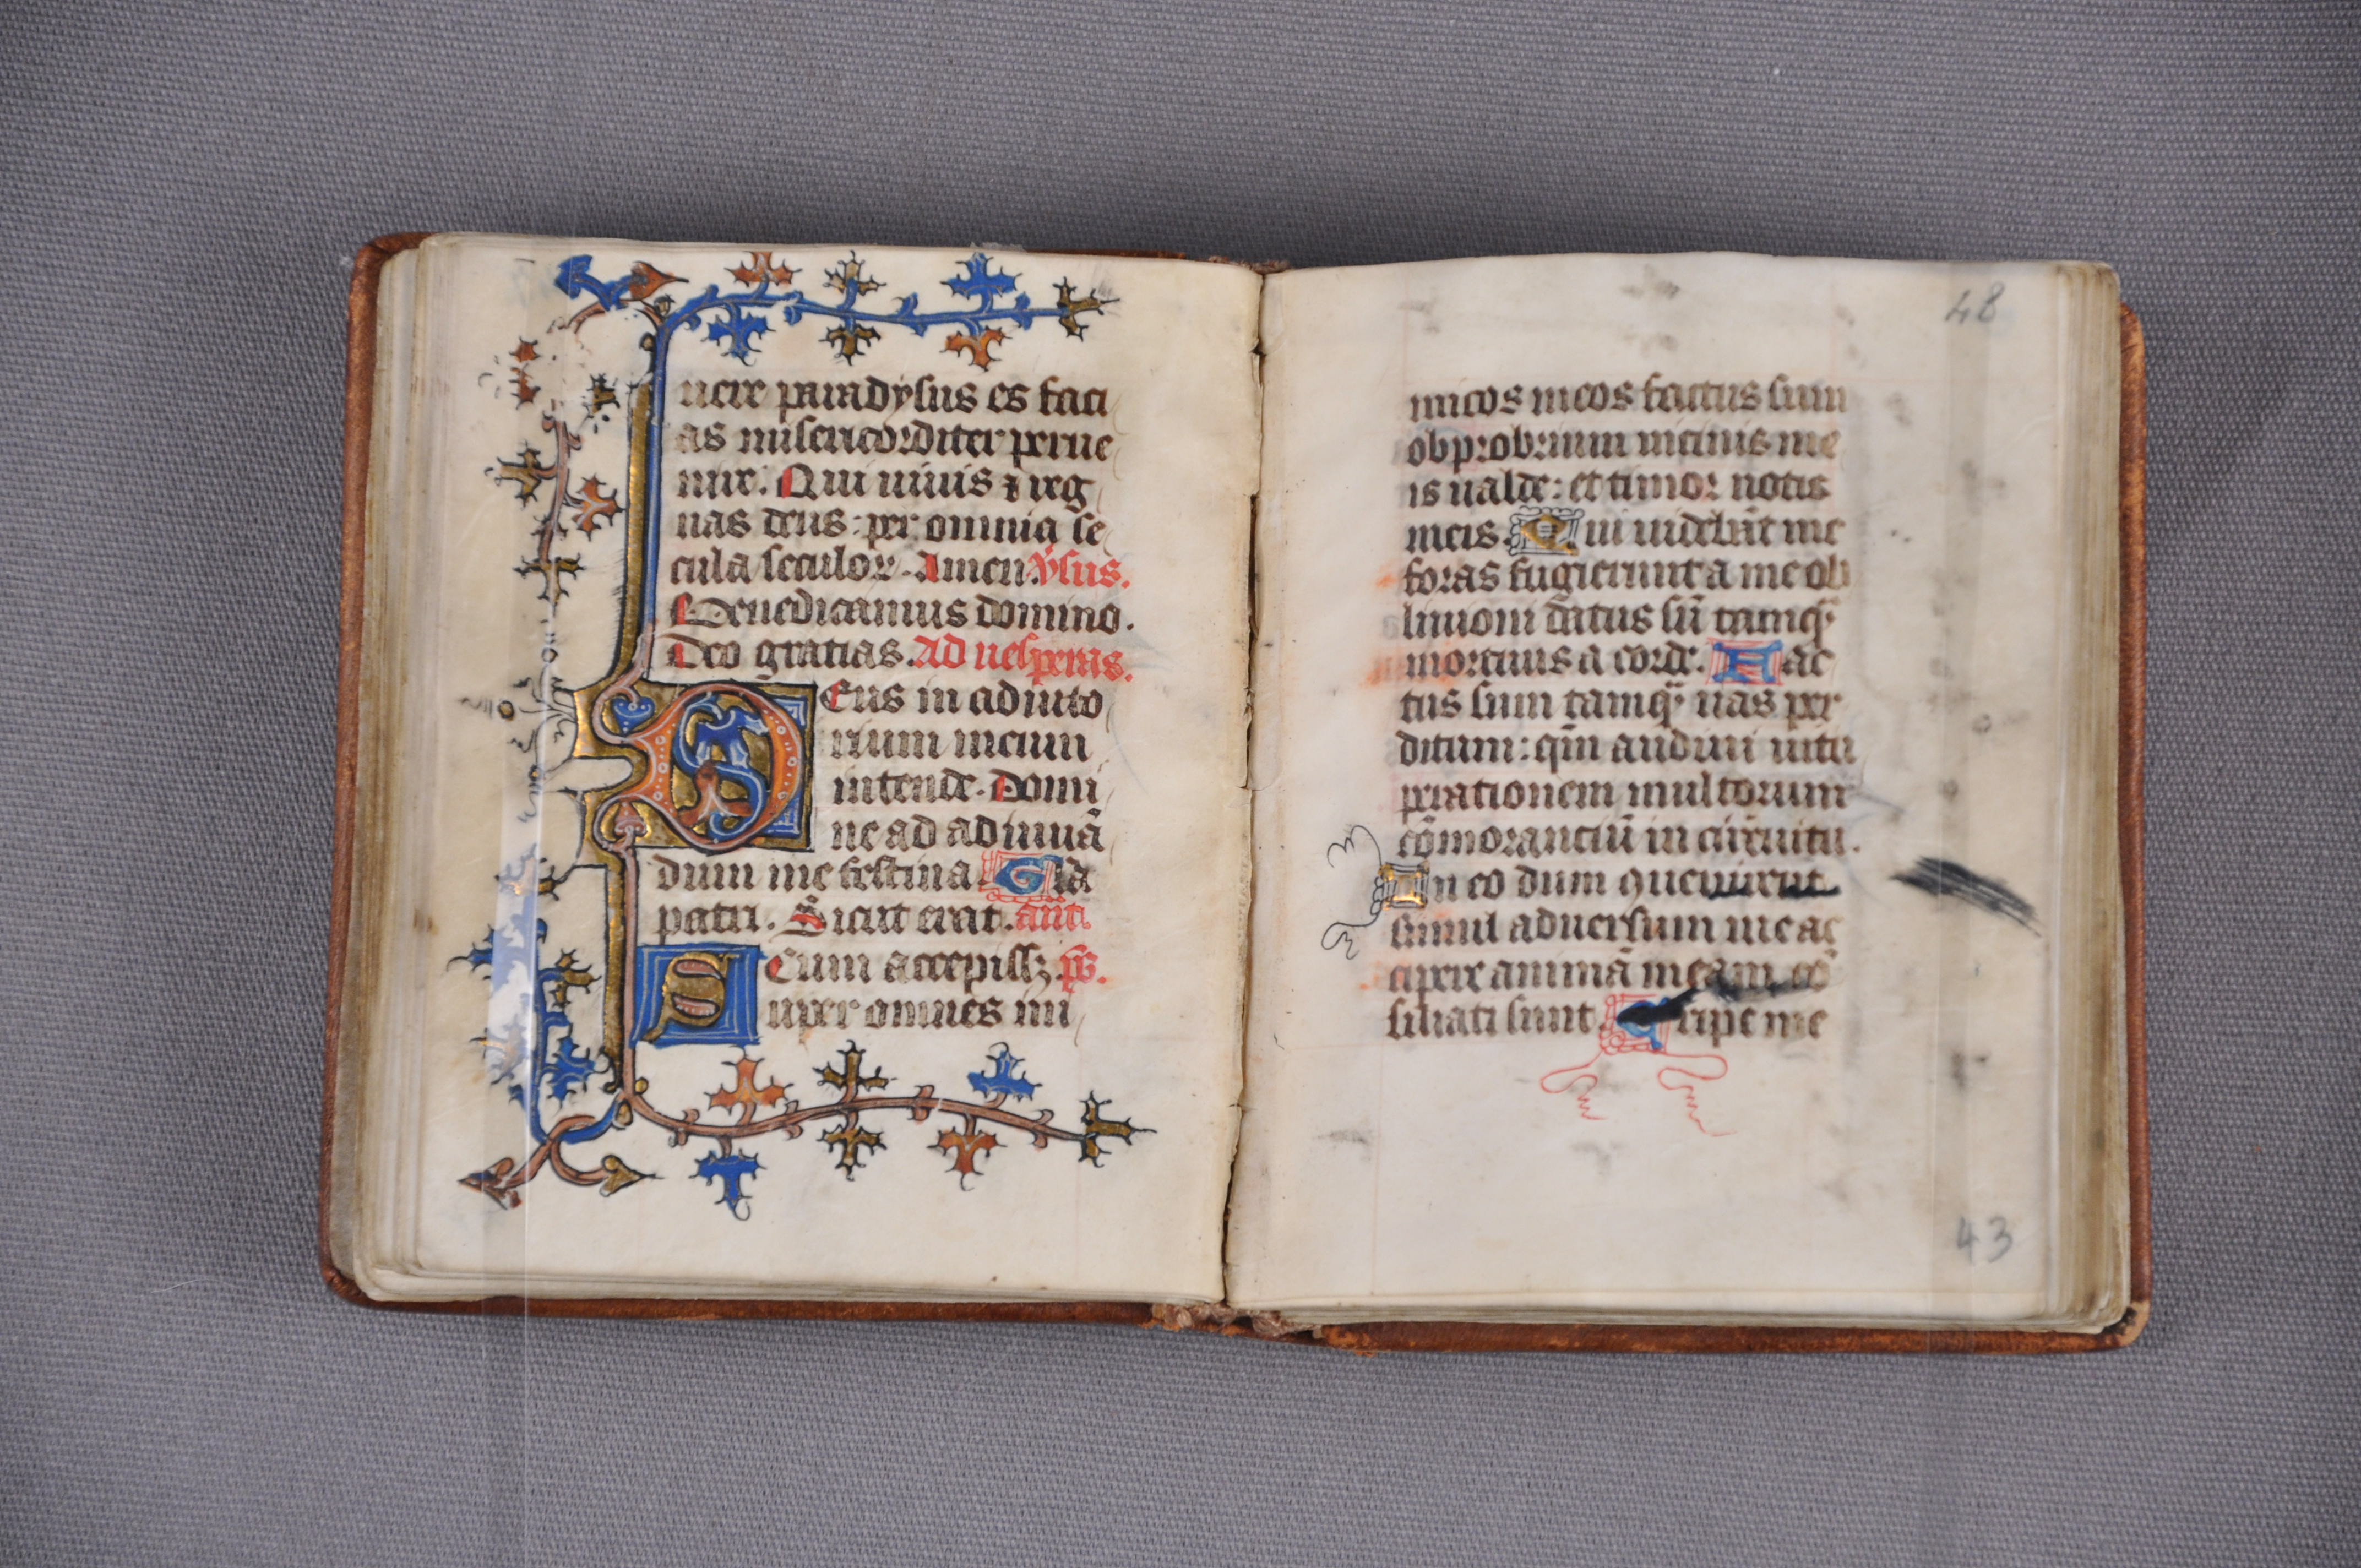 uere paradysus es faci
as misericorditer perue
nire. Qui uiuis ⁊ reg
nas deus: per omnia se
cula seculoꝝ. Amen. v̄sus.
Benedicamus domino.
Deo gratias. Ad uesperas.
Deus in adiuto
rium meum
intende. Domi
ne ad adiuuā
dum me festina. Gła
patri. Sicut erat. anti.
Cum accepissꝫ. ps̄.
Super omnes ini
48
micos meos factus sum
obprobrium uicinis me
is ualde: et timor notis
meis. Qui uidebāt me
foras fugierunt a me ob
liuioni datus sū tamq̄
mortuus a corde. Fac
tus sum tamq̄ uas per
ditum: qm̄ audiui uitu
perationem multorum
cōmorantiū in circuitu.
In eo dum 9uenirent
simul aduersum me ac
cipere animā meam cō
siliati sunt. Eripe me
43